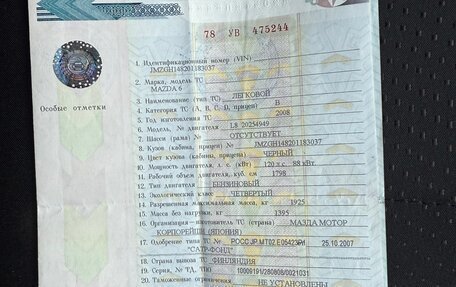 78 УВ 475244
Особые отметки
1. Идентификационный номер (VIN)
JMZGH148201183037
2. Марка, модель ТС
MAZDA 6
3. Наименование (тип ТС) ЛЕГКОВОЙ
4. Категория ТС (А, В, С, D, прицеп) B
5. Год изготовления ТС 2008
6. Модель, № двигателя L8 20254949
7. Шасси (рама) № ОТСУТСТВУЕТ
8. Кузов (кабина, прицеп) № JMZGH148201183037
9. Цвет кузова (кабины, прицепа) ЧЕРНЫЙ
10. Мощность двигателя, л. с. (кВт) 120 л.с. 88 кВт.
11. Рабочий объем двигателя, куб. см 1798
12. Тип двигателя БЕНЗИНОВЫЙ
13. Экологический класс ЧЕТВЕРТЫЙ
14. Разрешенная максимальная масса, кг 1925
15. Масса без нагрузки, кг 1395
16. Организация—изготовитель ТС (страна) МАЗДА МОТОР
КОРПОРЕЙШН (ЯПОНИЯ)
17. Одобрение типа ТС № РОСС JP.MT02.E05423P1 25.10.2007
"САТР-ФОНД"
18. Страна вывоза ТС ФИНЛЯНДИЯ
19. Серия, № ТД, ТПО 10009191/280808/0021031
20. Таможенные ограничения НЕ УСТАНОВЛЕНЫ